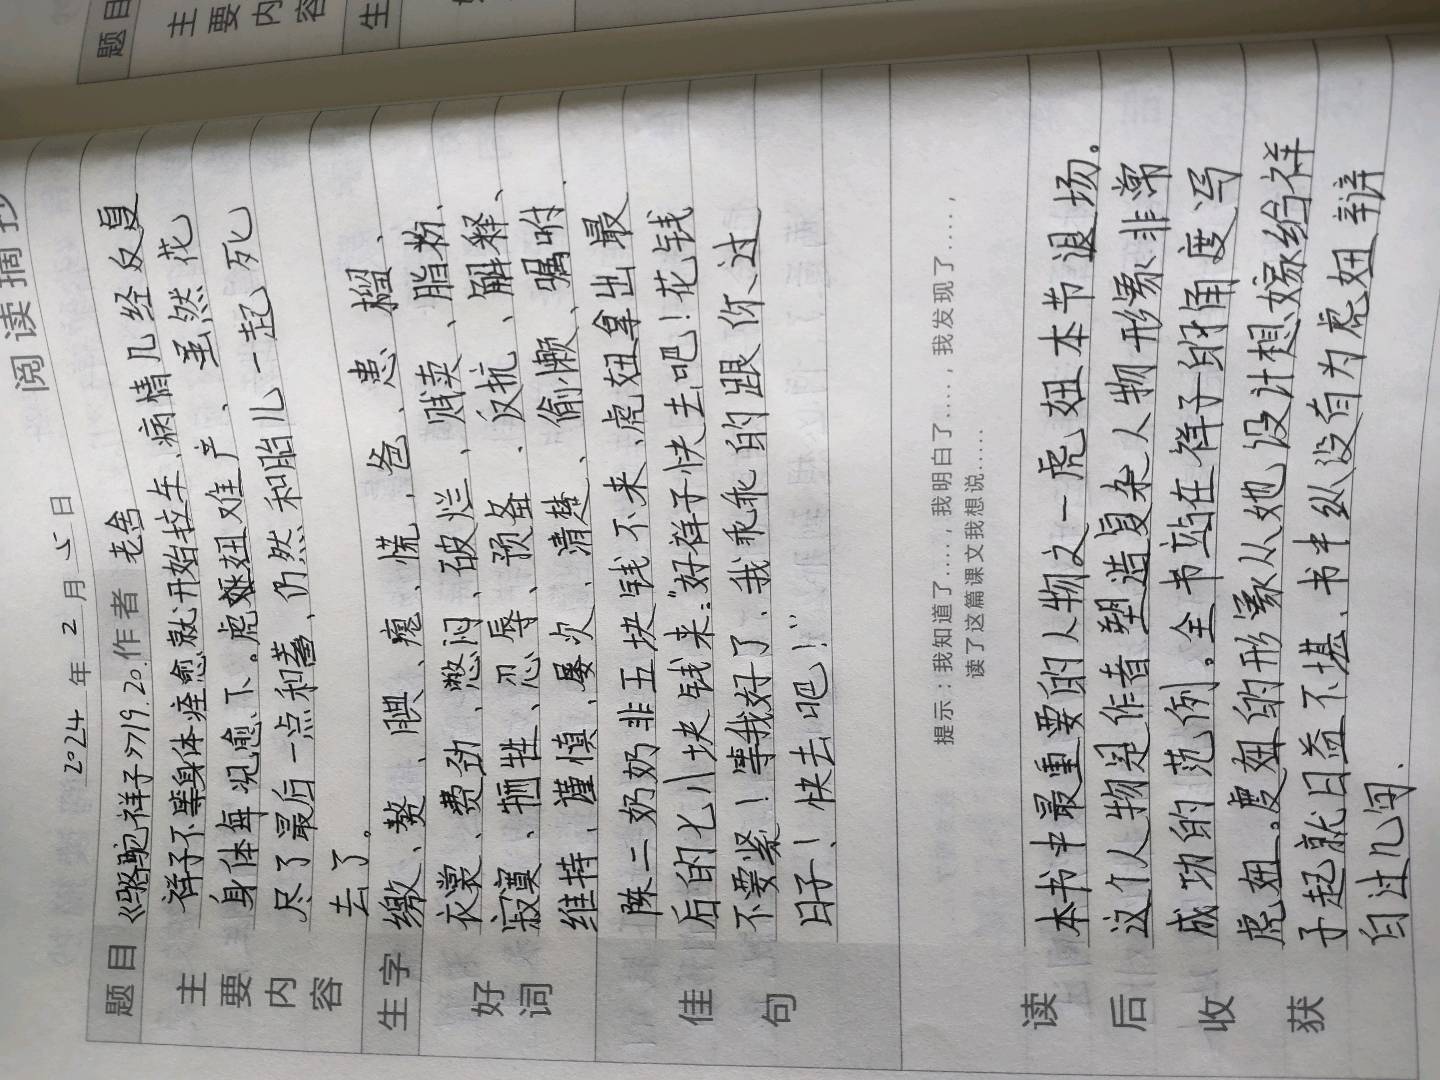 阅读摘抄
2024年2月5日
题目 《骆驼祥子》19.20. 作者 老舍
主要内容
祥子不等身体痊愈就开始拉车、病情几经反复
身体每况愈下。虎妞难产、虽然花
尽了最后一点积蓄、仍然和胎儿一起死
去了。
生字 缴、赘、腆、瘪、慌、爸、患、榴、
好词
衣裳、费劲、憋闷、破烂、贱卖、脂粉、
寂寞、牺牲、忍辱、预备、反抗、解释、
维持、谨慎、屡次、清楚、偷懒、嘱咐.
佳句
陈二奶奶非五块钱不来、虎妞拿出最
后的七八块钱来:“好祥子快去吧!花钱
不要紧!等我好了、我乖乖的跟你过
日子!快去吧!”
提示:我知道了……,我明白了……,我发现了……,
读了这篇课文我想说……
读后收获
本书中最重要的人物之一虎妞本节退场。
这个人物是作者塑造复杂人物形象非常
成功的范例。全书站在祥子的角度写
虎妞。虎妞的形象从她设计想嫁给祥
子起就日益不堪、书中纵没有为虎妞辩
白过几句.
题目
主要内容
生